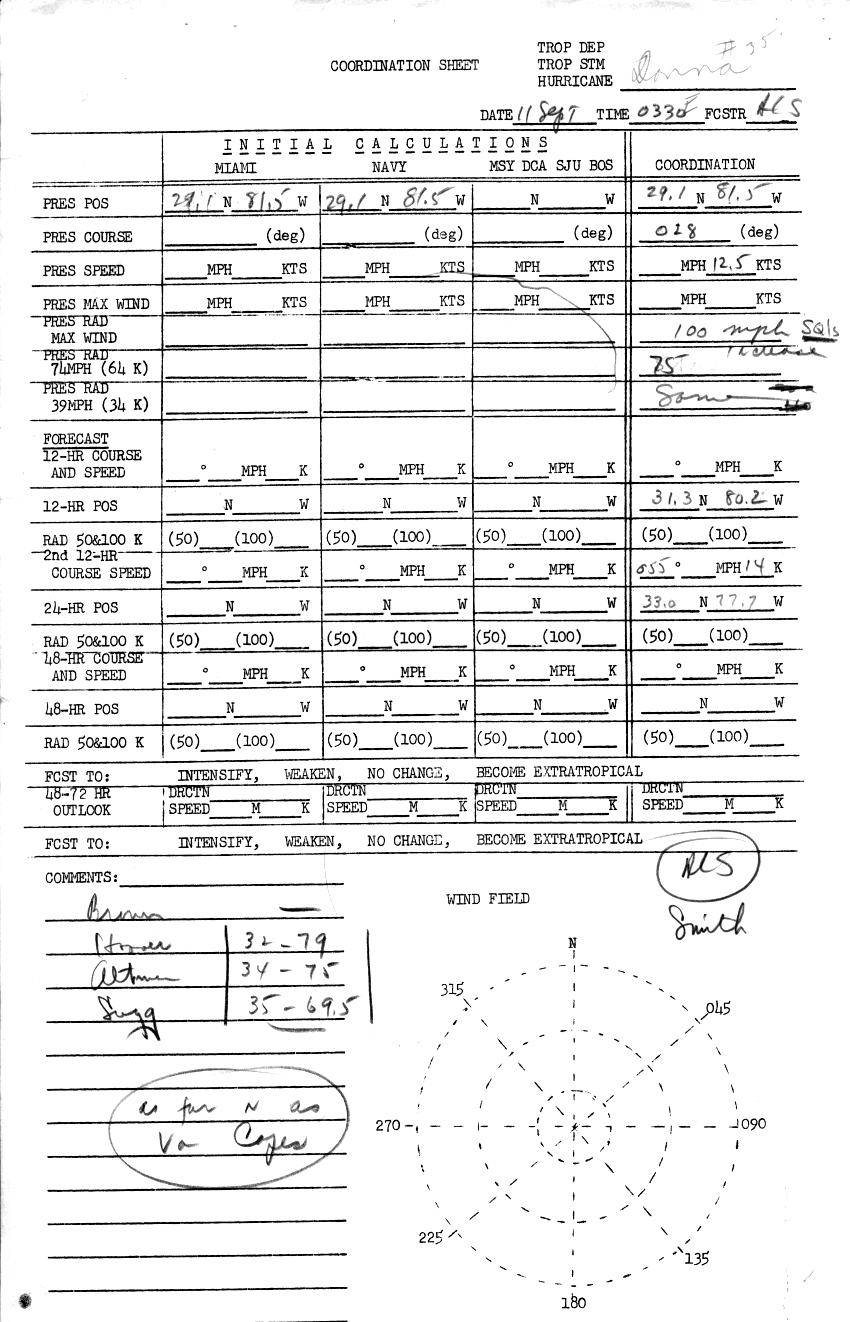 # 35
TROP DEP
COORDINATION SHEET TROP STM
HURRICANE Donna
DATE 11 Sept TIME 0330Z FCSTR ALS
INITIAL CALCULATIONS
MIAMI NAVY MSY DCA SJU BOS COORDINATION
PRES POS 29.1 N 81.5 W 29.1 N 81.5 W N W 29.1 N 81.5 W
PRES COURSE (deg) (deg) (deg) 028 (deg)
PRES SPEED MPH KTS MPH KTS MPH KTS MPH 12.5 KTS
PRES MAX WIND MPH KTS MPH KTS MPH KTS MPH KTS
PRES RAD
MAX WIND 100 mph SQls
increase
PRES RAD
74MPH (64 K) 75
PRES RAD
39MPH (34 K) Same
FORECAST
12-HR COURSE
AND SPEED ° MPH K ° MPH K ° MPH K ° MPH K
12-HR POS N W N W N W 31.3 N 80.2 W
RAD 50&100 K (50) (100) (50) (100) (50) (100) (50) (100)
2nd 12-HR
COURSE SPEED ° MPH K ° MPH K ° MPH K 055 ° MPH 14 K
24-HR POS N W N W N W 33.0 N 77.7 W
RAD 50&100 K (50) (100) (50) (100) (50) (100) (50) (100)
48-HR COURSE
AND SPEED ° MPH K ° MPH K ° MPH K ° MPH K
48-HR POS N W N W N W N W
RAD 50&100 K (50) (100) (50) (100) (50) (100) (50) (100)
FCST TO: INTENSIFY, WEAKEN, NO CHANGE, BECOME EXTRATROPICAL
48-72 HR DRCTN DRCTN DRCTN DRCTN
OUTLOOK SPEED M K SPEED M K SPEED M K SPEED M K
FCST TO: INTENSIFY, WEAKEN, NO CHANGE, BECOME EXTRATROPICAL
ALS
Smith
COMMENTS:
32 - 79
Altman 34 - 75
Sugg 35 - 69.5
as far N as
Va Capes
WIND FIELD
N
315
045
270
090
225
135
180